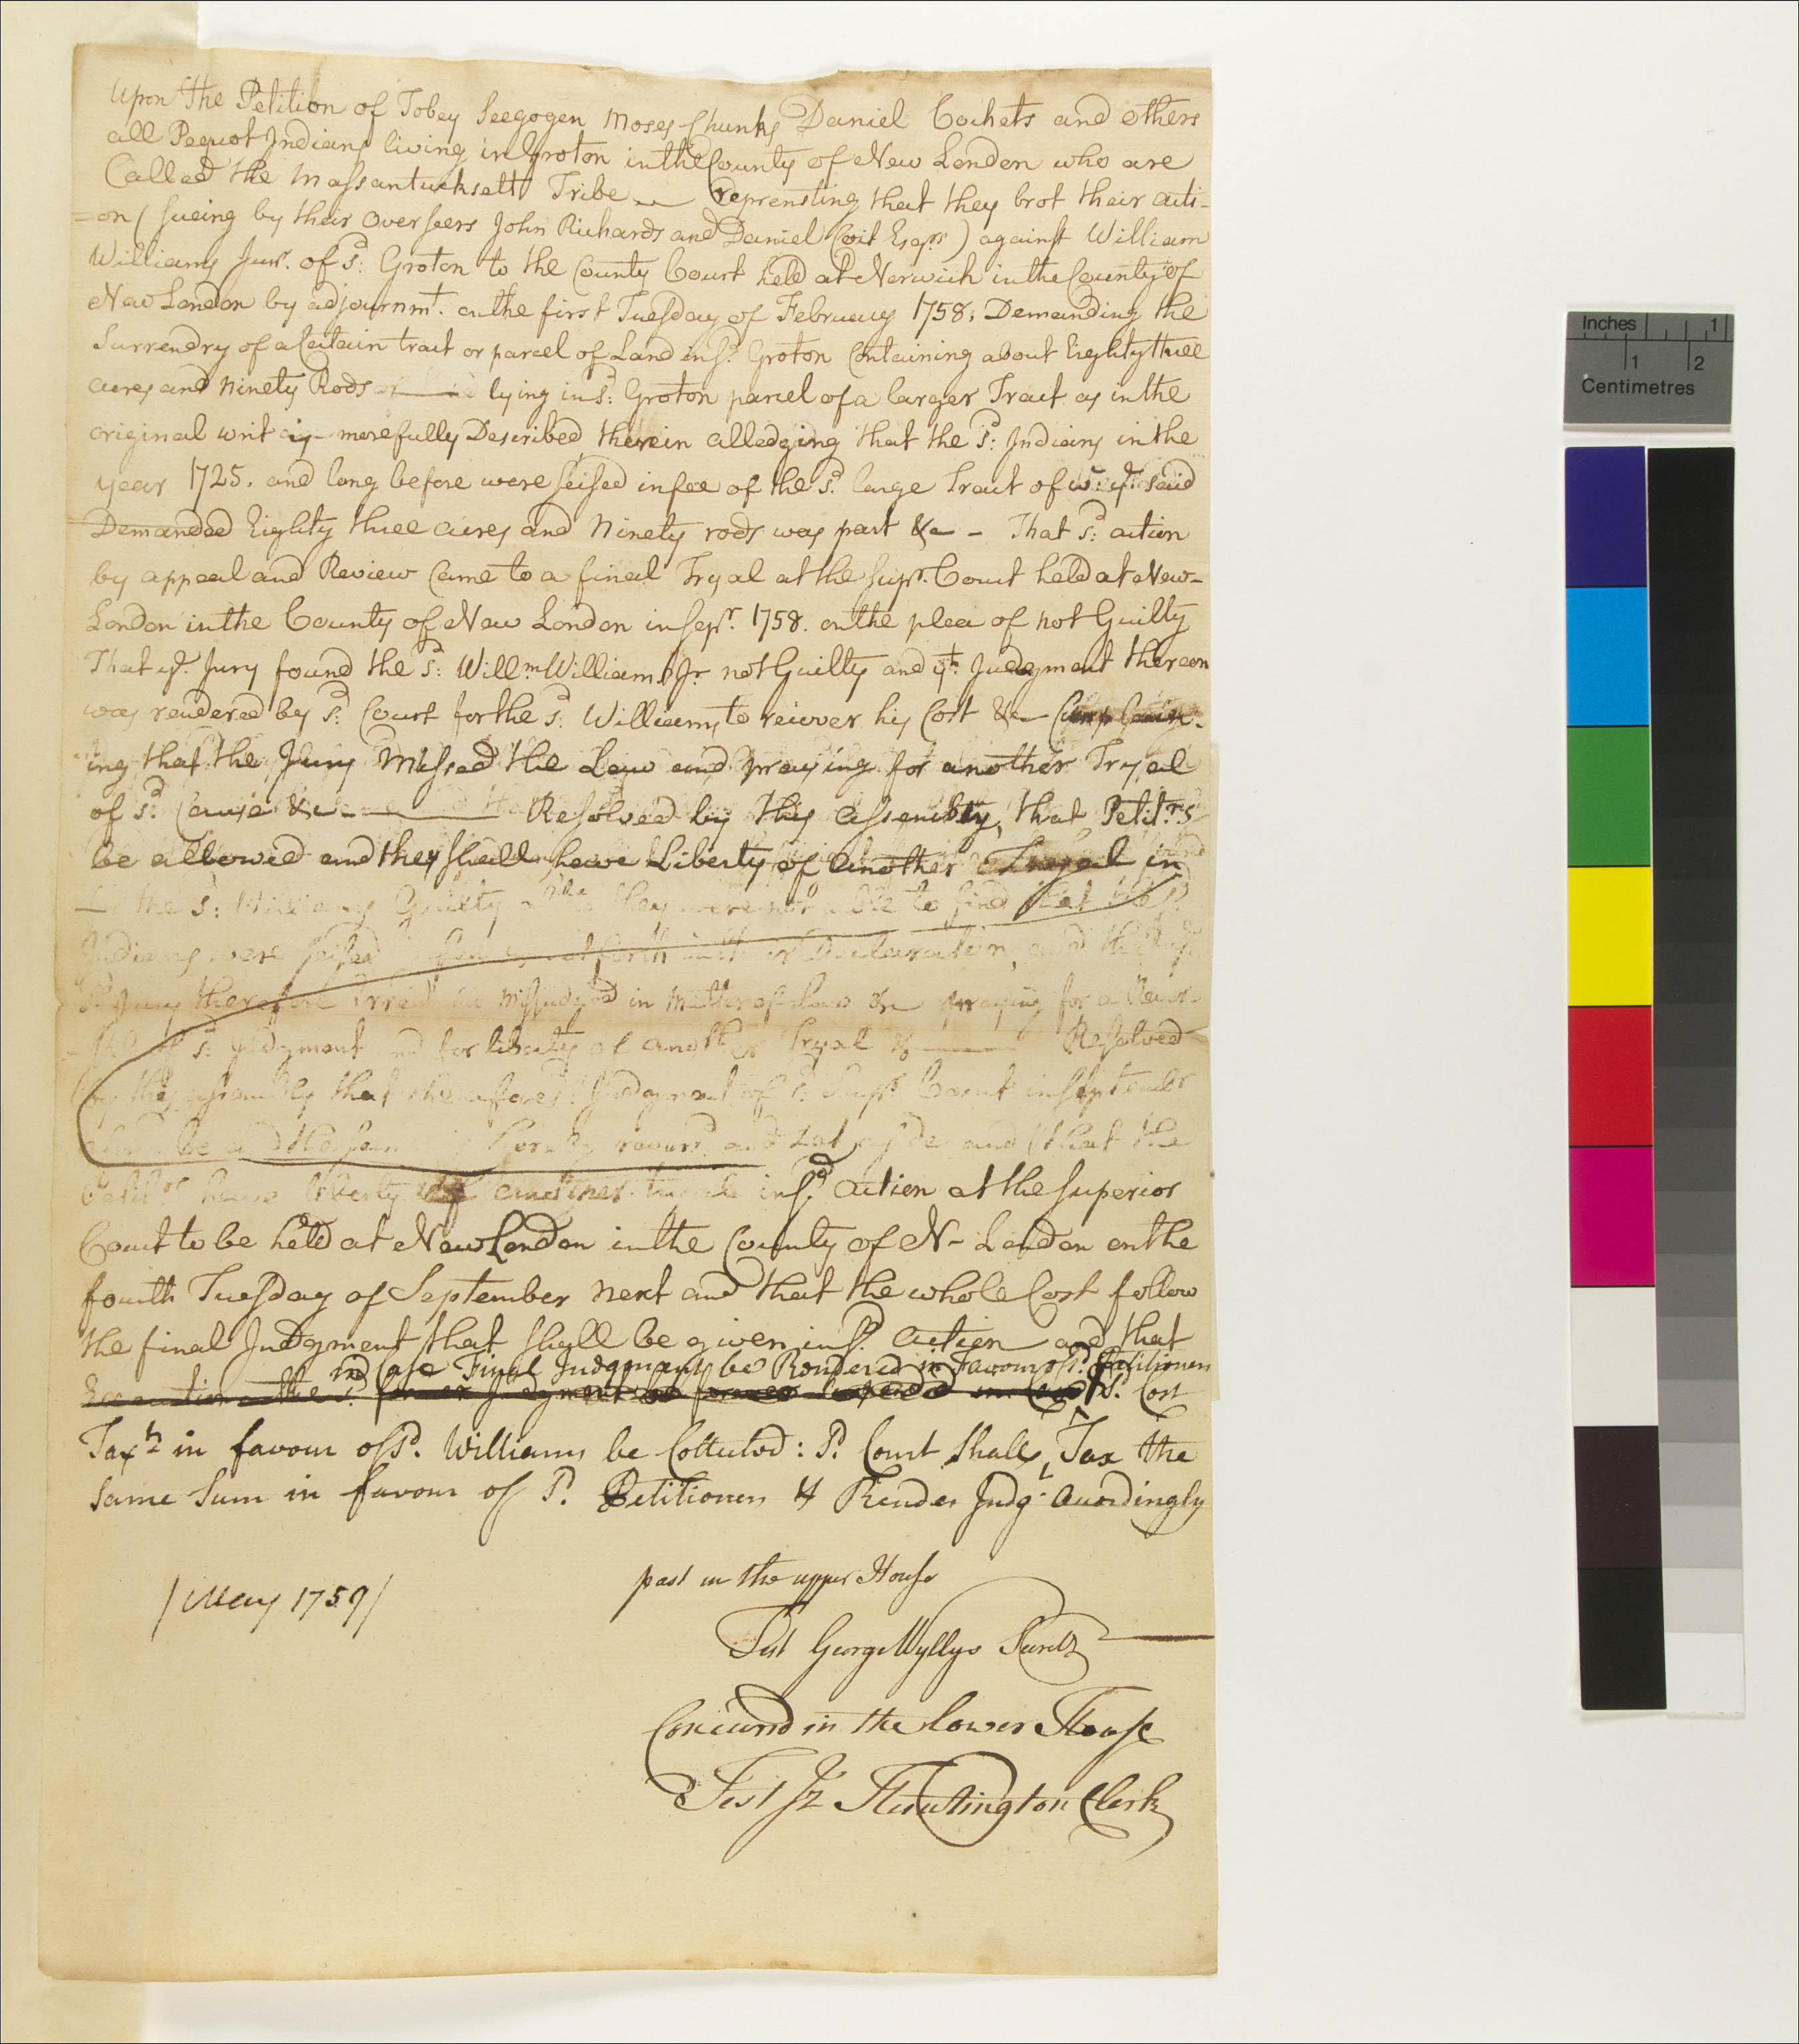 Upon the Petition of Tobey Seegogen Moses Shunks Daniel Cochets and others
all Pequot Indians living in Groton in the County of New London who are
Called the Massantucksett Tribe — reprensting that they brot their acti-
=on (sueing by their overseers John Richards and Daniel Coit Esqrs) against William
Williams Junr. of sd: Groton to the County Court held at Norwich in the County of
New London by adjournmt. on the first Tuesday of February 1758. Demanding the
Surrendry of a Certain tract or parcel of Land in sd. Groton Containing about Eighty three
acres and ninety Rods lying in sd: Groton parcel of a larger Tract as in the
original writ is more fully Described, therein alledging that the sd: Indians in the
year 1725. and long before were seised in fee of the sd. large Tract of wc. ye. said
Demanded Eighty three acres and Ninety rods was part &c - That sd: action
by appeal and Review Came to a final Tryal at the Supr. Court held at New-
London in the County of New London in Sepr. 1758. on the plea of not Guilty
That ye. Jury found the sd: Willm Williams Jr. not Guilty and yt. Judgment thereon
was rendered by sd: Court for the sd: Williams to recover his Cost &c— Complain-
ing that the Jury Missed the Law and praying for another Tryal
of sd: Cause &c — Resolved by this Assembly, that Petitrs
be allowed and they shall have Liberty of another Tryal in
the sd: Williams Guilty they were not to find that the sd
Indians were seised forth in Declaration, and
sd. Jury therefore Erred misjudged in Matter of Law &c praying for a Rever-
sd: Judgment and for liberty of another Tryal &c — Resolved
by this assembly that the aforesd. Judgment of sd: Supr. Court in September
be and the same hereby reversd. and Set asyde and that the
Petitrs have liberty of another in sd. action at the Superior
Court to be held at New London in the County of N- London on the
fourth Tuesday of September next and that the whole Cost follow
the final Judgment that shall be given in sd. action and that
in Case Final Judgment be Rendered in Favour of sd. Petitioners
Execution on the sd. former Judgment be in Case sd. Cost
Taxd in favour of sd. Williams be Collected: sd. Court shall, Tax the
Same Sum in favour of sd. Petitioners & Render Judgt Accordingly
/May 1759/
past in the upper House
Test George Wyllys Secretz
Concurrd in the Lower House
Test Jz Huntington Clerk
Inches 1
1 2
Centimetres